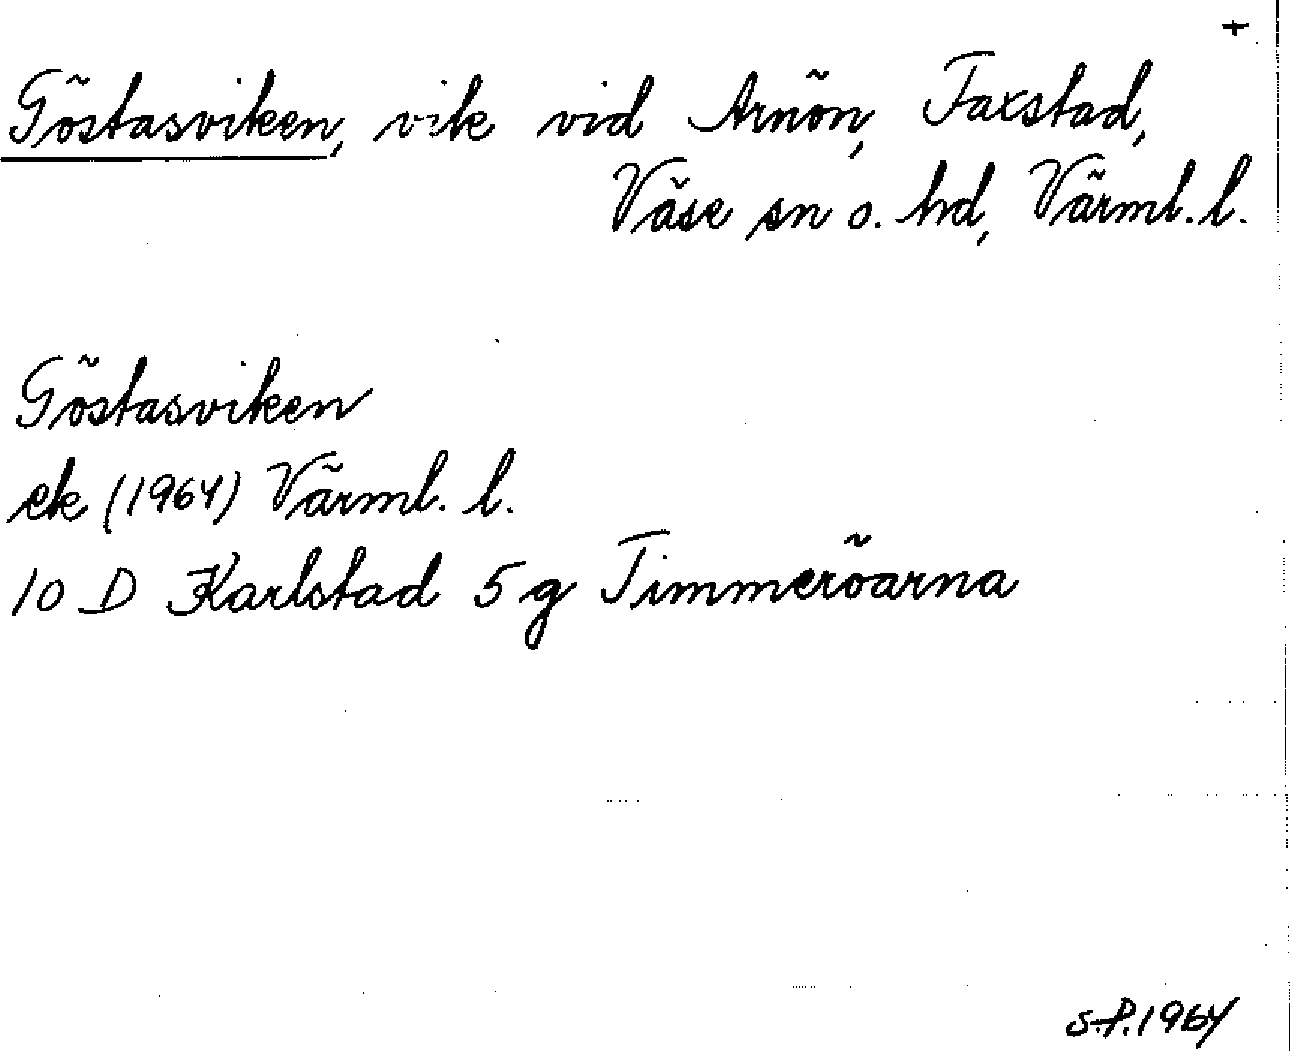 +
Göstasviken, vik vid Arnön, Taxstad,
Väse sn o. hd, Värml. l.
Göstasviken
ek (1964) Värml. l.
10 D Karlstad 5 g Timmeröarna
S.P. 1964